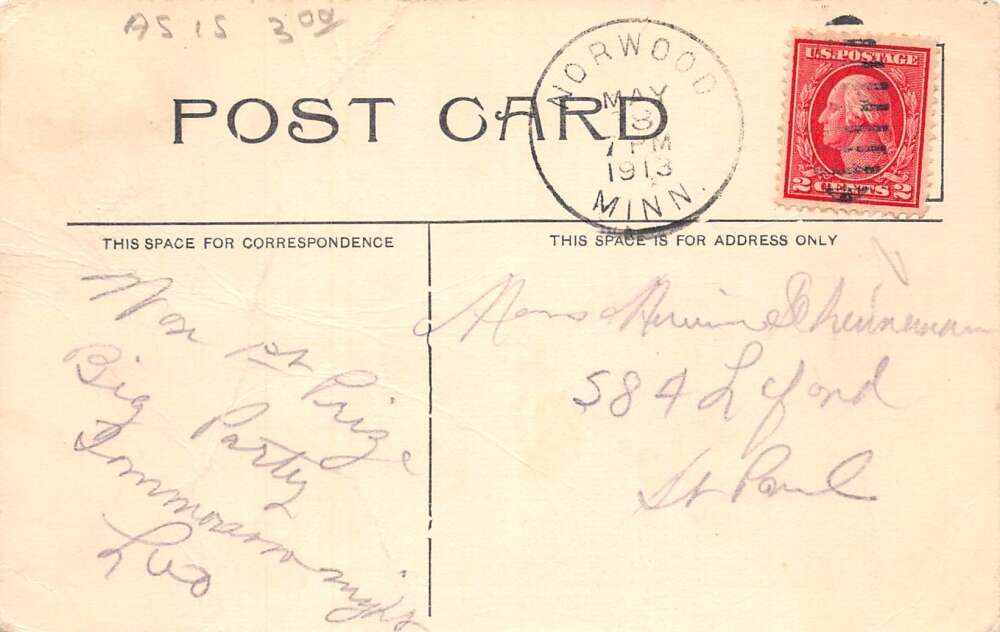 AS IS 3.00
POST CARD
NORWOOD
MAY
18
7 PM
1913
MINN.
U.S.POSTAGE
2 CENTS 2
THIS SPACE FOR CORRESPONDENCE
THIS SPACE IS FOR ADDRESS ONLY
Won 1st Prize
Big Party
Tommorow night
Leo
584
St Paul